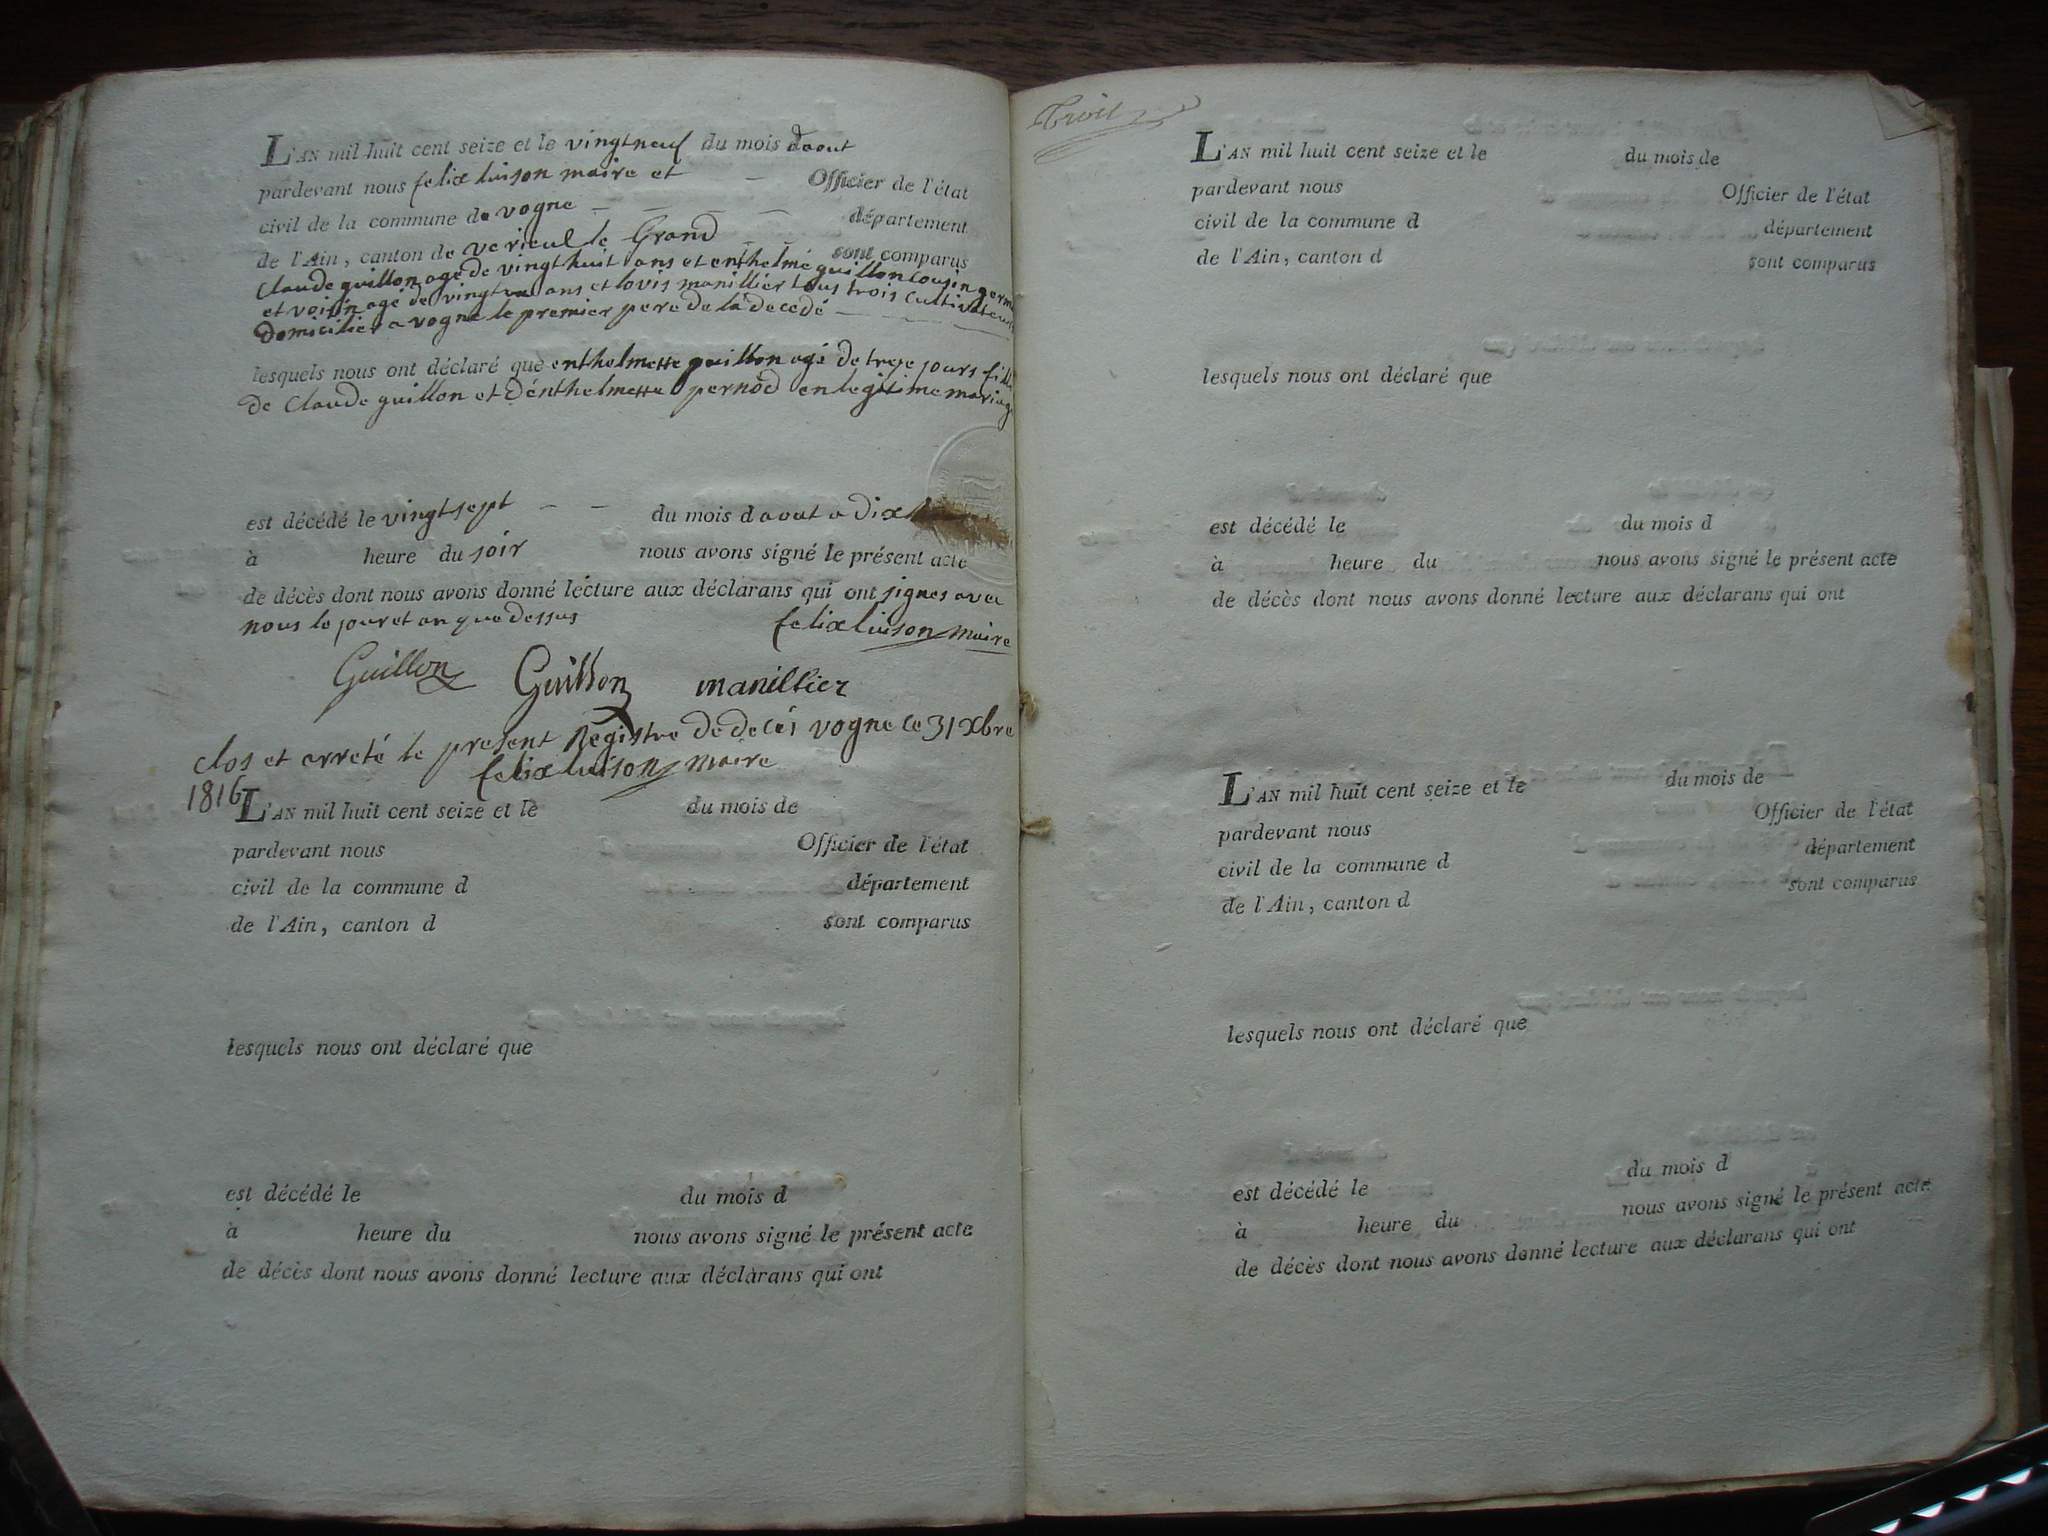 L'AN mil huit cent seize et le vingt neuf du mois daout
pardevant nous felix luison maire et Officier de l'état
civil de la commune de vogne département
de l'Ain, canton de verieul le Grand sont comparus
Claude guillon agé de vingt huit ans et enthelmé guillon cousin germ
et voisin agé de vingt ans et lovis manillier tous trois cultivateurs
domicilier a vogne le premier pere de la decedé
lesquels nous ont déclaré que enthelmette guillon agé de treze jours fille
de Claude guillon et dénthelmette pernod en legitime mariage
est décédé le vingt sept du mois daout a dix
à heure du soir nous avons signé le présent acte
de décès dont nous avons donné lecture aux déclarans qui ont signes avec
nous le jour et an que dessus felix luison maire
Guillon Guillon manillier
clos et arreté le present Registre de decés vogne le 31 Xbre
1816 felix luison maire
L'AN mil huit cent seize et le du mois de
pardevant nous Officier de l'état
civil de la commune d département
de l'Ain, canton d sont comparus
lesquels nous ont déclaré que
est décédé le du mois d
à heure du nous avons signé le présent acte
de décès dont nous avons donné lecture aux déclarans qui ont
L'AN mil huit cent seize et le du mois de
pardevant nous Officier de l'état
civil de la commune d département
de l'Ain, canton d sont comparus
lesquels nous ont déclaré que
est décédé le du mois d
à heure du nous avons signé le présent acte
de décès dont nous avons donné lecture aux déclarans qui ont
L'AN mil huit cent seize et le du mois de
pardevant nous Officier de l'état
civil de la commune d département
de l'Ain, canton d sont comparus
lesquels nous ont déclaré que
est décédé le du mois d
à heure du nous avons signé le présent acte
de décès dont nous avons donné lecture aux déclarans qui ont